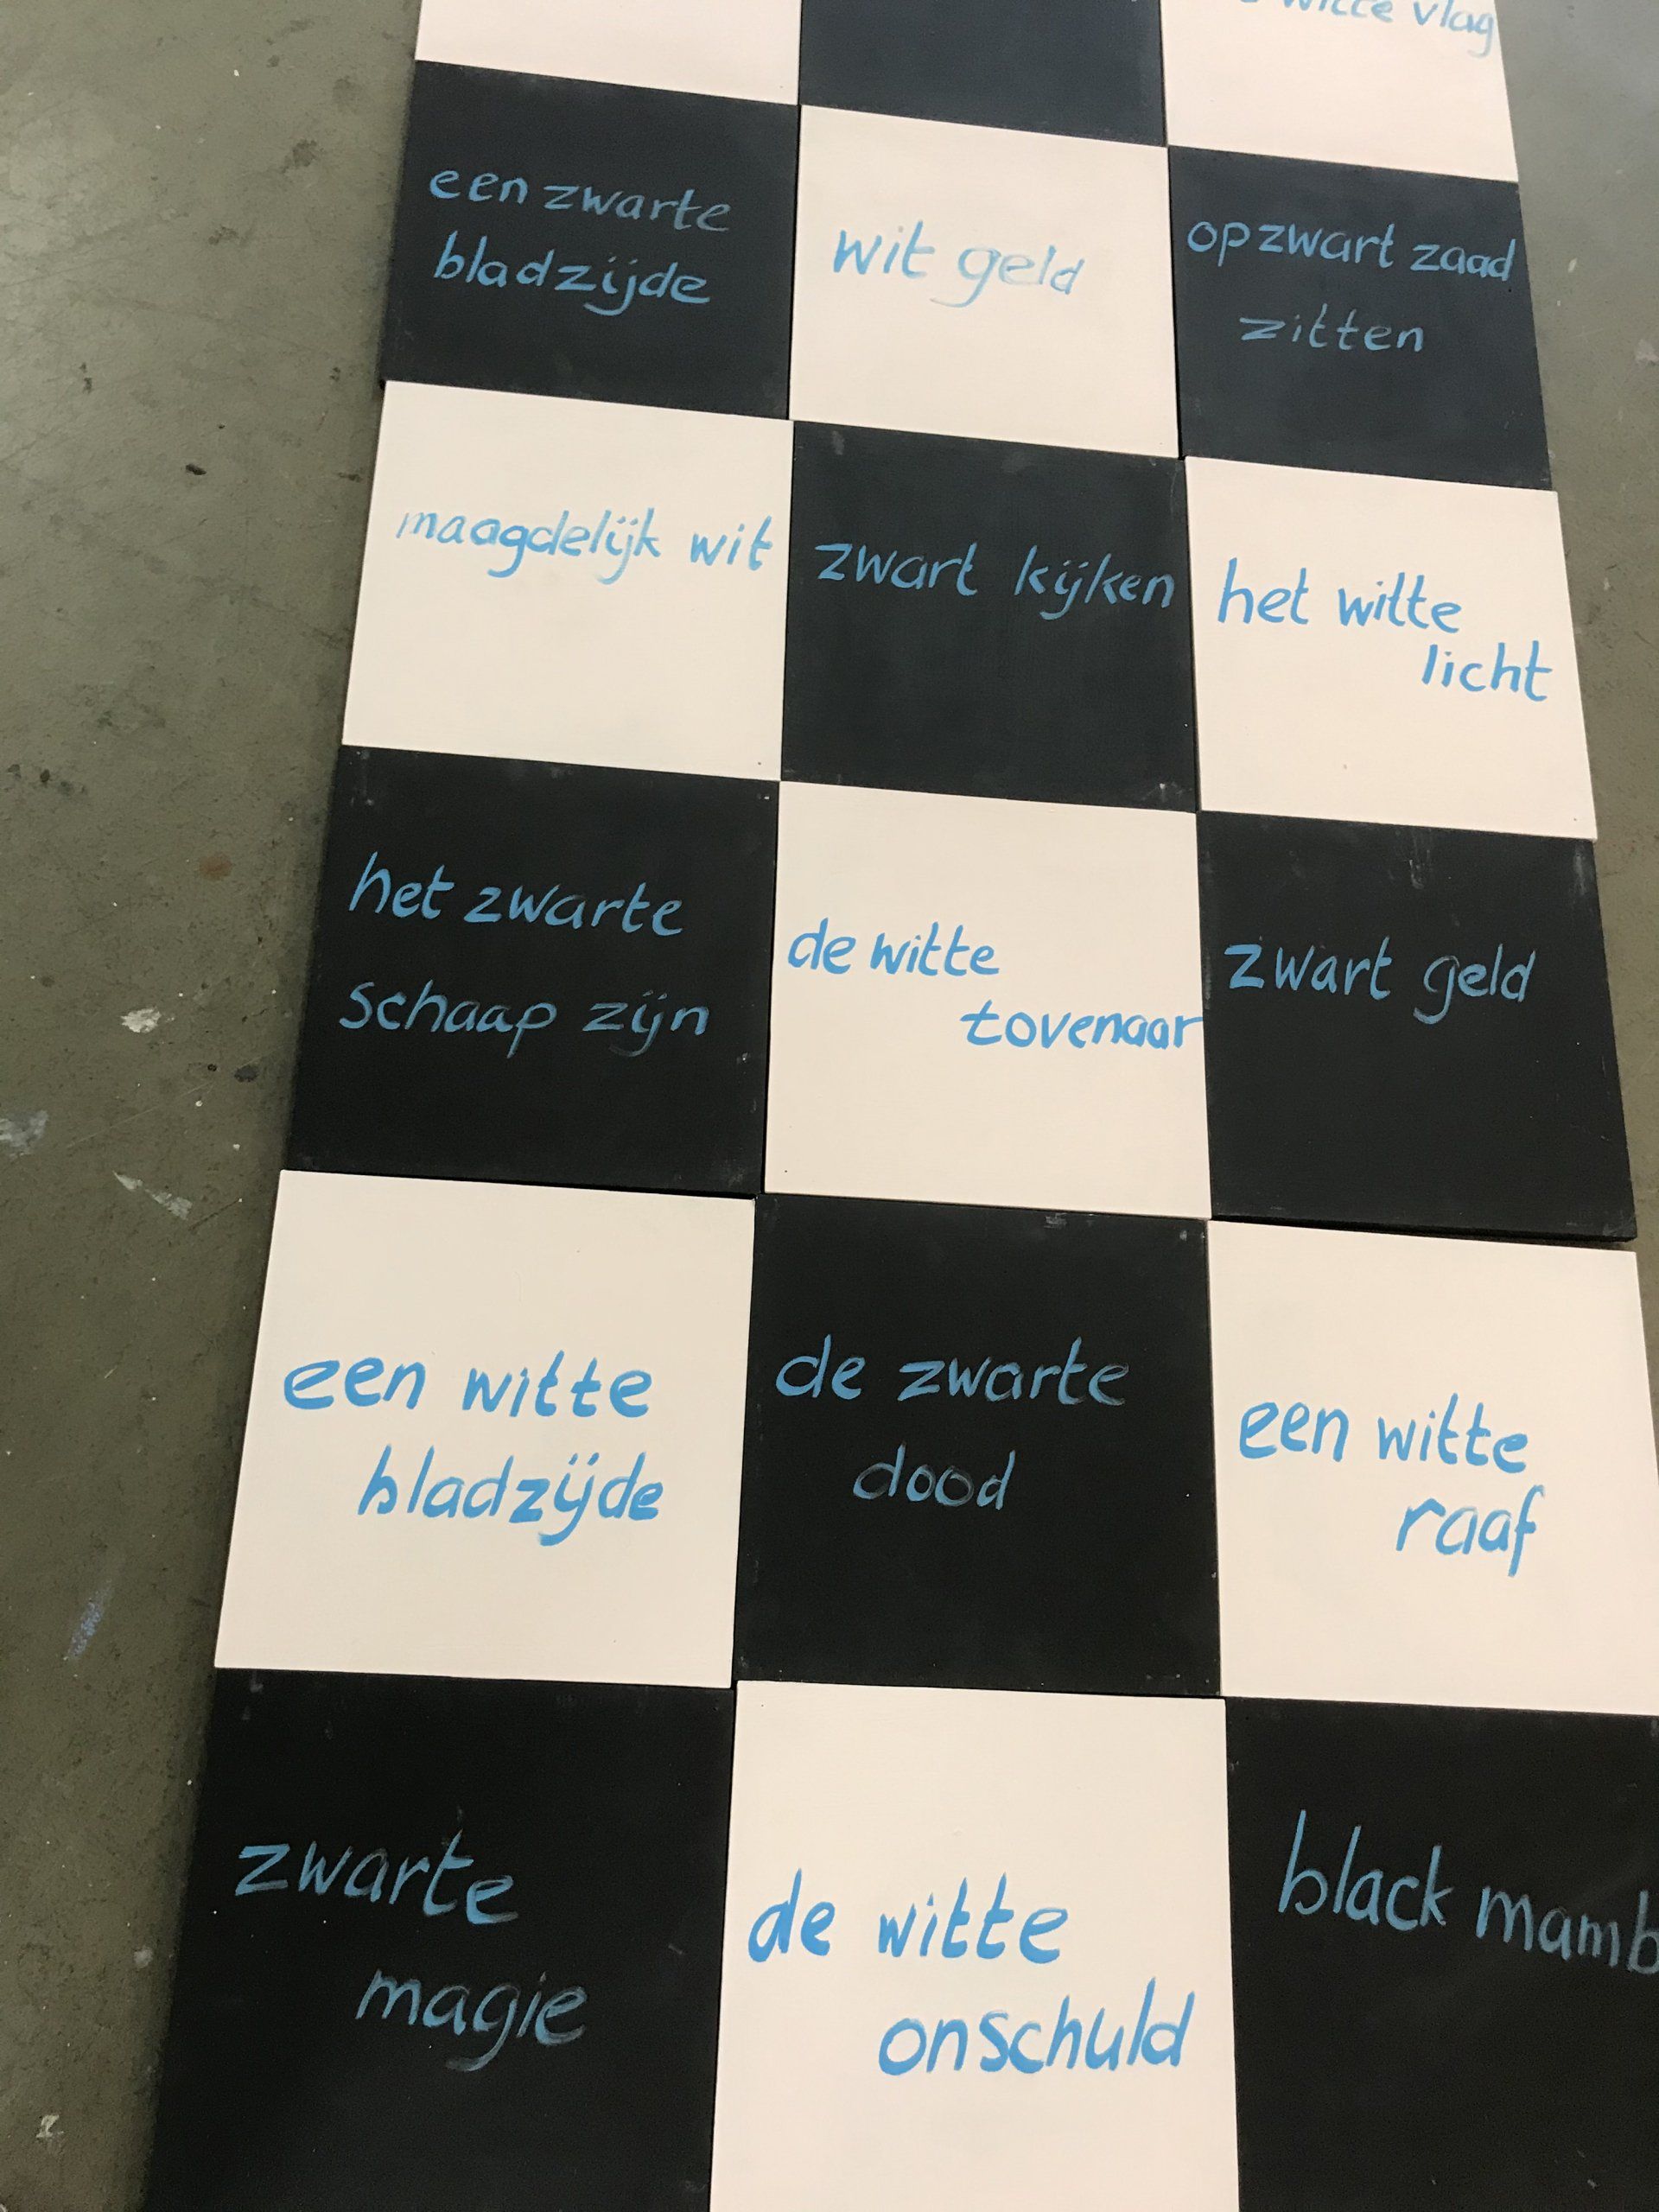 witte vlag
een zwarte
bladzijde
wit geld
op zwart zaad
zitten
maagdelijk wit
zwart kijken
het witte
licht
het zwarte
schaap zijn
de witte
tovenaar
zwart geld
een witte
bladzijde
de zwarte
dood
een witte
raaf
zwarte
magie
de witte
onschuld
black mamb